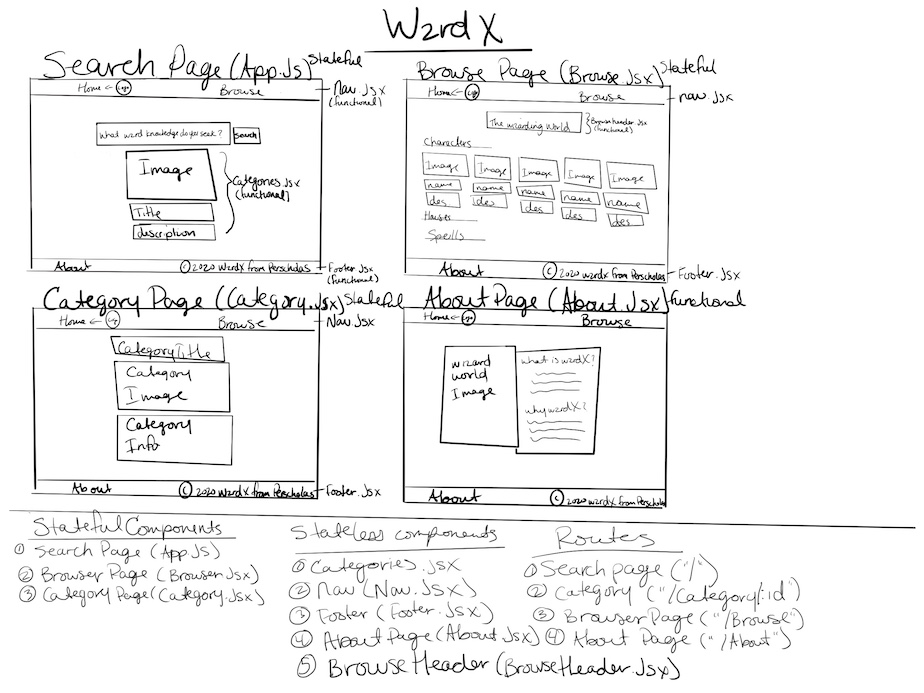 WzrdX
Search Page (App.Js) Stateful
Home ← Logo Browse
Nav.Jsx
(functional)
What wzrd knowledge do you seek? Search
Image
Title
description
Categories.Jsx
(functional)
About © 2020 WzrdX from Perscholas
Footer.Jsx
(functional)
Browse Page (Browse.Jsx) Stateful
Home ← Logo Browse
nav.Jsx
The wizarding World
BrowseHeader.Jsx
(functional)
Characters
Image Image Image Image Image
name name name name name
des des des des des
Houses
Spells
About © 2020 wzrdX from Perscholas
Footer.Jsx
Category Page (Category.Jsx) Stateful
Home ← Logo Browse
Nav.Jsx
Category Title
Category
Image
Category
Info
About © 2020 wzrdX from Perscholas
Footer.Jsx
About Page (About.Jsx) functional
Home ← Logo Browse
wizard
world
Image
what is wzrdX?
why wzrdX?
About © 2020 wzrdX from Perscholas
Stateful Components
① Search Page (App.Js)
② Browser Page (Browser.Jsx)
③ Category Page (Category.Jsx)
Stateless components
① Categories.Jsx
② Nav (Nav.Jsx)
③ Footer (Footer.Jsx)
④ About Page (About.Jsx)
⑤ BrowseHeader (BrowseHeader.Jsx)
Routes
① Search page ("/")
② Category ("/Category/:id")
③ Browser Page ("/Browse")
④ About Page ("/About")